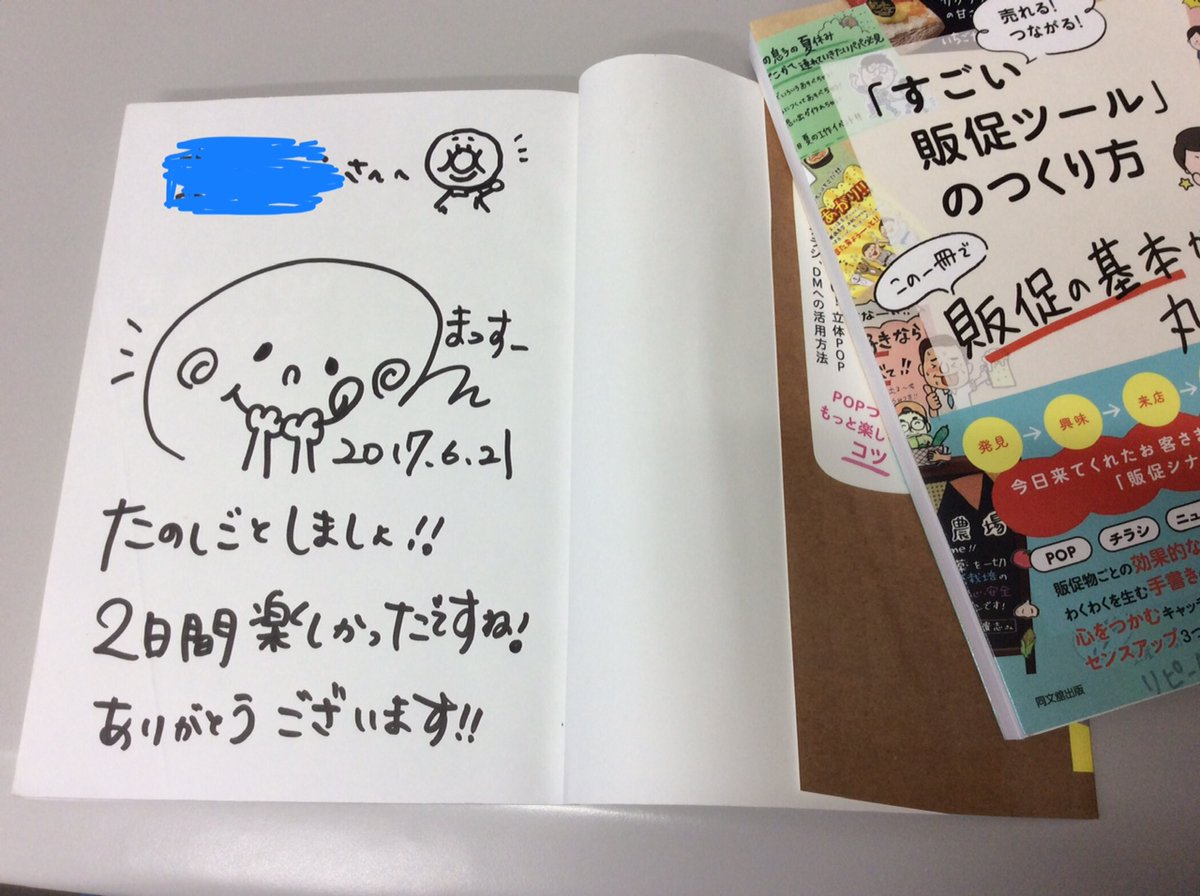 さんへ
まっすー
2017.6.21
たのしごとしましょ!!
2日間楽しかったですね!
ありがとうございます!!
売れる!
つながる!
「すごい
販促ツール」
のつくり方
この一冊で
販促の基本が
丸
発見→興味→来店→
今日来てくれたお客さま
「販促シナ
POP チラシ ニュ
販促物ごとの効果的な
わくわくを生む手書き
心をつかむキャッ
センスアップ3つ
リピー
同文舘出版
の息子の夏休み
連れていきたいパパ必見
夏の工作イベント!!
立体POP
、DMへの活用方法
POPつ
もっと楽し
コツ
好きなら
農場